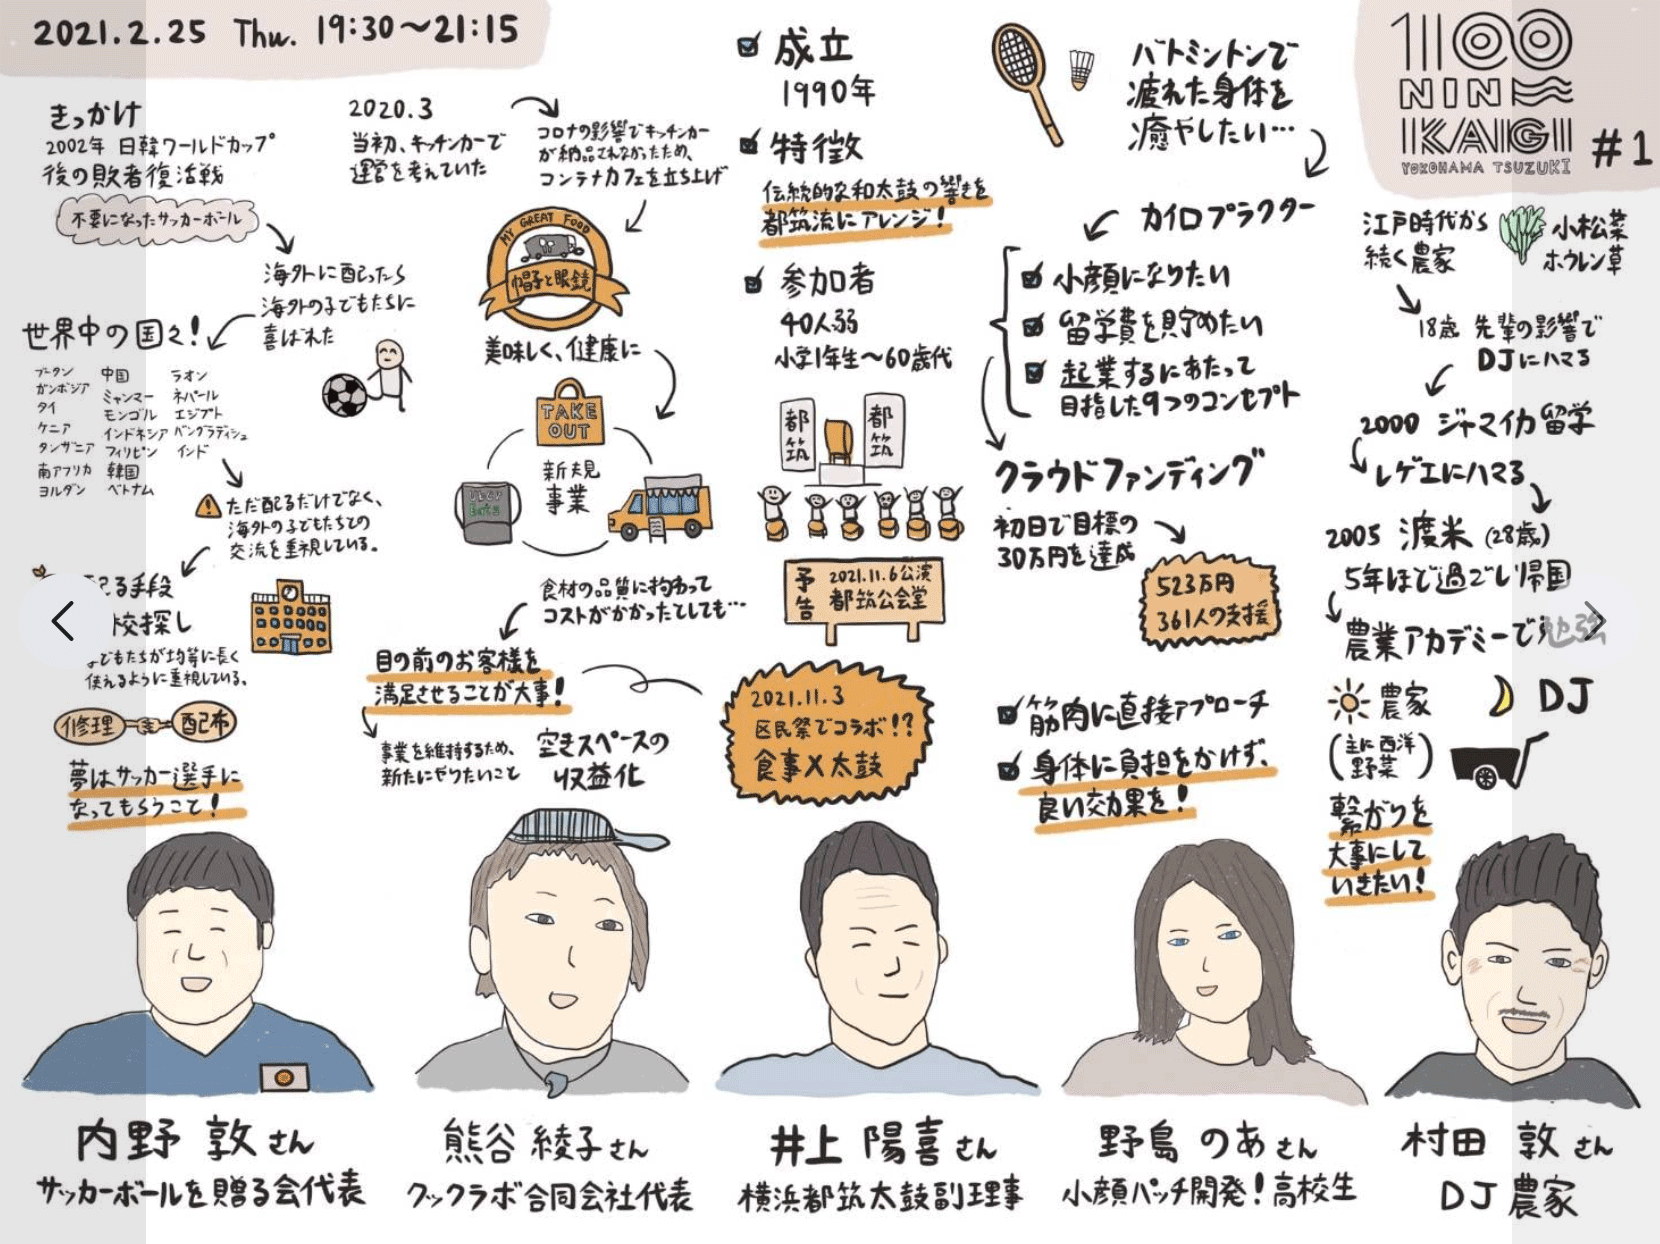 2021.2.25 Thu. 19:30〜21:15
100
NIN
KAIGI
YOKOHAMA TSUZUKI
#1
きっかけ
2002年 日韓ワールドカップ
後の敗者復活戦
不要になったサッカーボール
海外に配ったら
海外の子どもたちに
喜ばれた
世界中の国々!
ブータン
カンボジア
タイ
ケニア
タンザニア
南アフリカ
ヨルダン
中国
ミャンマー
モンゴル
インドネシア
フィリピン
韓国
ベトナム
ラオン
ネパール
エジプト
バングラディシュ
インド
ただ配るだけでなく、
海外の子どもたちとの
交流を重視している。
配る手段
校探し
子どもたちが均等に長く
使えるように重視している。
修理
配布
夢はサッカー選手に
なってもらうこと!
内野 敦さん
サッカーボールを贈る会代表
2020.3
当初、キッチンカーで
運営を考えていた
コロナの影響でキッチンカー
が納品されなかったため、
コンテナカフェを立ち上げ
MY GREAT FOOD
帽子と眼鏡
美味しく、健康に
TAKE
OUT
新規
事業
UBER
Eats
食材の品質に拘わって
コストがかかったとしても…
目の前のお客様を
満足させることが大事!
事業を維持するため、
新たにやりたいこと
空きスペースの
収益化
熊谷 綾子さん
クックラボ合同会社代表
成立
1990年
特徴
伝統的な和太鼓の響きを
都筑流にアレンジ!
参加者
40人弱
小学1年生〜60歳代
都筑
都筑
予告
2021.11.6公演
都筑公会堂
2021.11.3
区民祭でコラボ!?
食事×太鼓
井上 陽喜さん
横浜都筑太鼓副理事
バトミントンで
疲れた身体を
癒やしたい…
カイロプラクター
小顔になりたい
留学費を貯めたい
起業するにあたって
目指した9つのコンセプト
クラウドファンディング
初日で目標の
30万円を達成
523万円
361人の支援
筋肉に直接アプローチ
身体に負担をかけず、
良い効果を!
野島 のあさん
小顔パッチ開発!高校生
江戸時代から
続く農家
小松菜
ホウレン草
18歳 先輩の影響で
DJにハマる
2000 ジャマイカ留学
レゲエにハマる
2005 渡米 (28歳)
5年ほど過ごし帰国
農業アカデミーで勉強
農家
(主に西洋
野菜)
DJ
繋がりを
大事にして
いきたい!
村田 敦さん
DJ農家